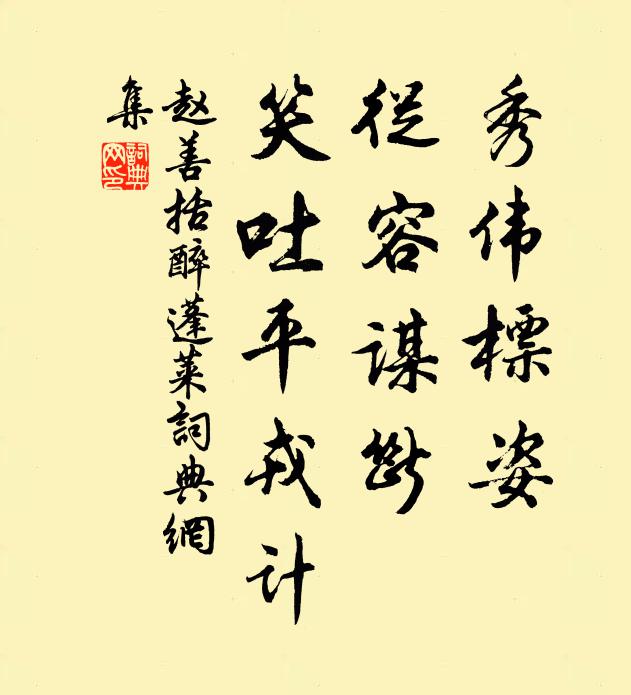 秀伟標姿
從容謀斷
笑吐平戎计
赵善括醉蓬莱詞典網
集
詞典
网印